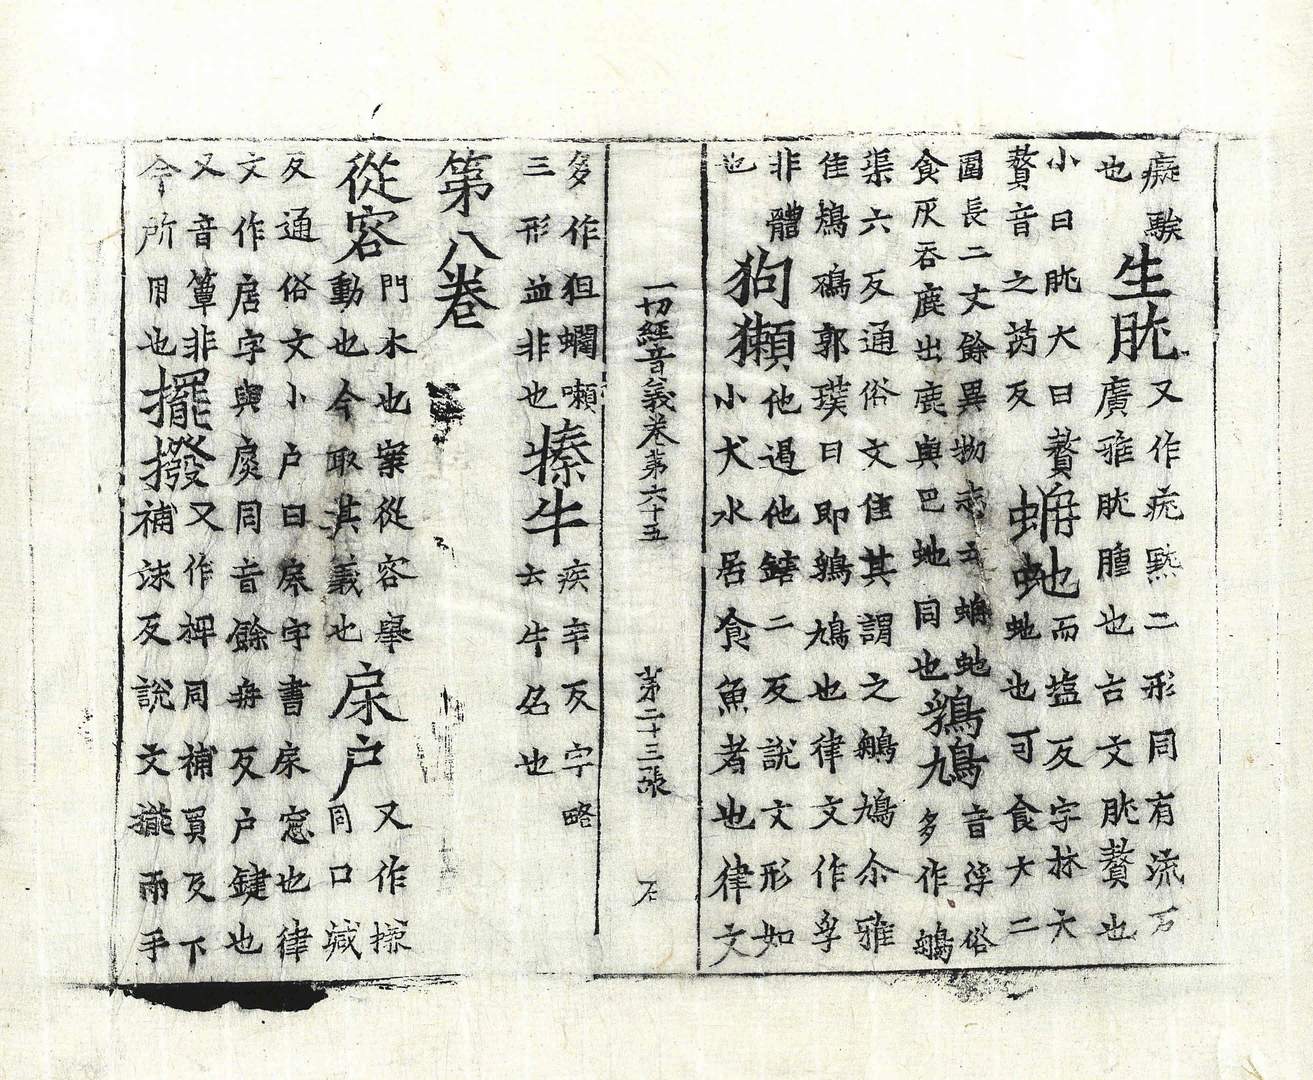 癡騃
也
生肬
又作疣㸠二形同有流反
廣雅肬腫也古文肬贅也
小曰肬大曰贅
贅音之芮反
蚺虵
而塩反字林大
虵也可食大二
圍長二丈餘異物志云蚺虵
食灰吞鹿出鹿與巴虵同也
鶉鳩
音浮俗
多作鵃
渠六反通俗文隹其謂之鵃鳩尒雅
隹鴩鴀郭璞曰即鶉鳩也律文作孚
非體
也
狗獺
他遏他鎋二反說文形如
小犬水居食魚者也律文
一切經音義卷第六十五
第二十三張
石
多作狚蠝嚹
三形並非也
㨷牛
疾卒反字略
云牛名也
第八卷
從容
門木也案從容舉
動也今取其義也
戾户
又作㨷
同口減
反通俗文小户曰戾字書戾窓也律
文作扂字與扊同音餘冉反户鍵也
又音簟非
今所用也
擺撥
又作捭同補買反下
補沫反說文擺兩手